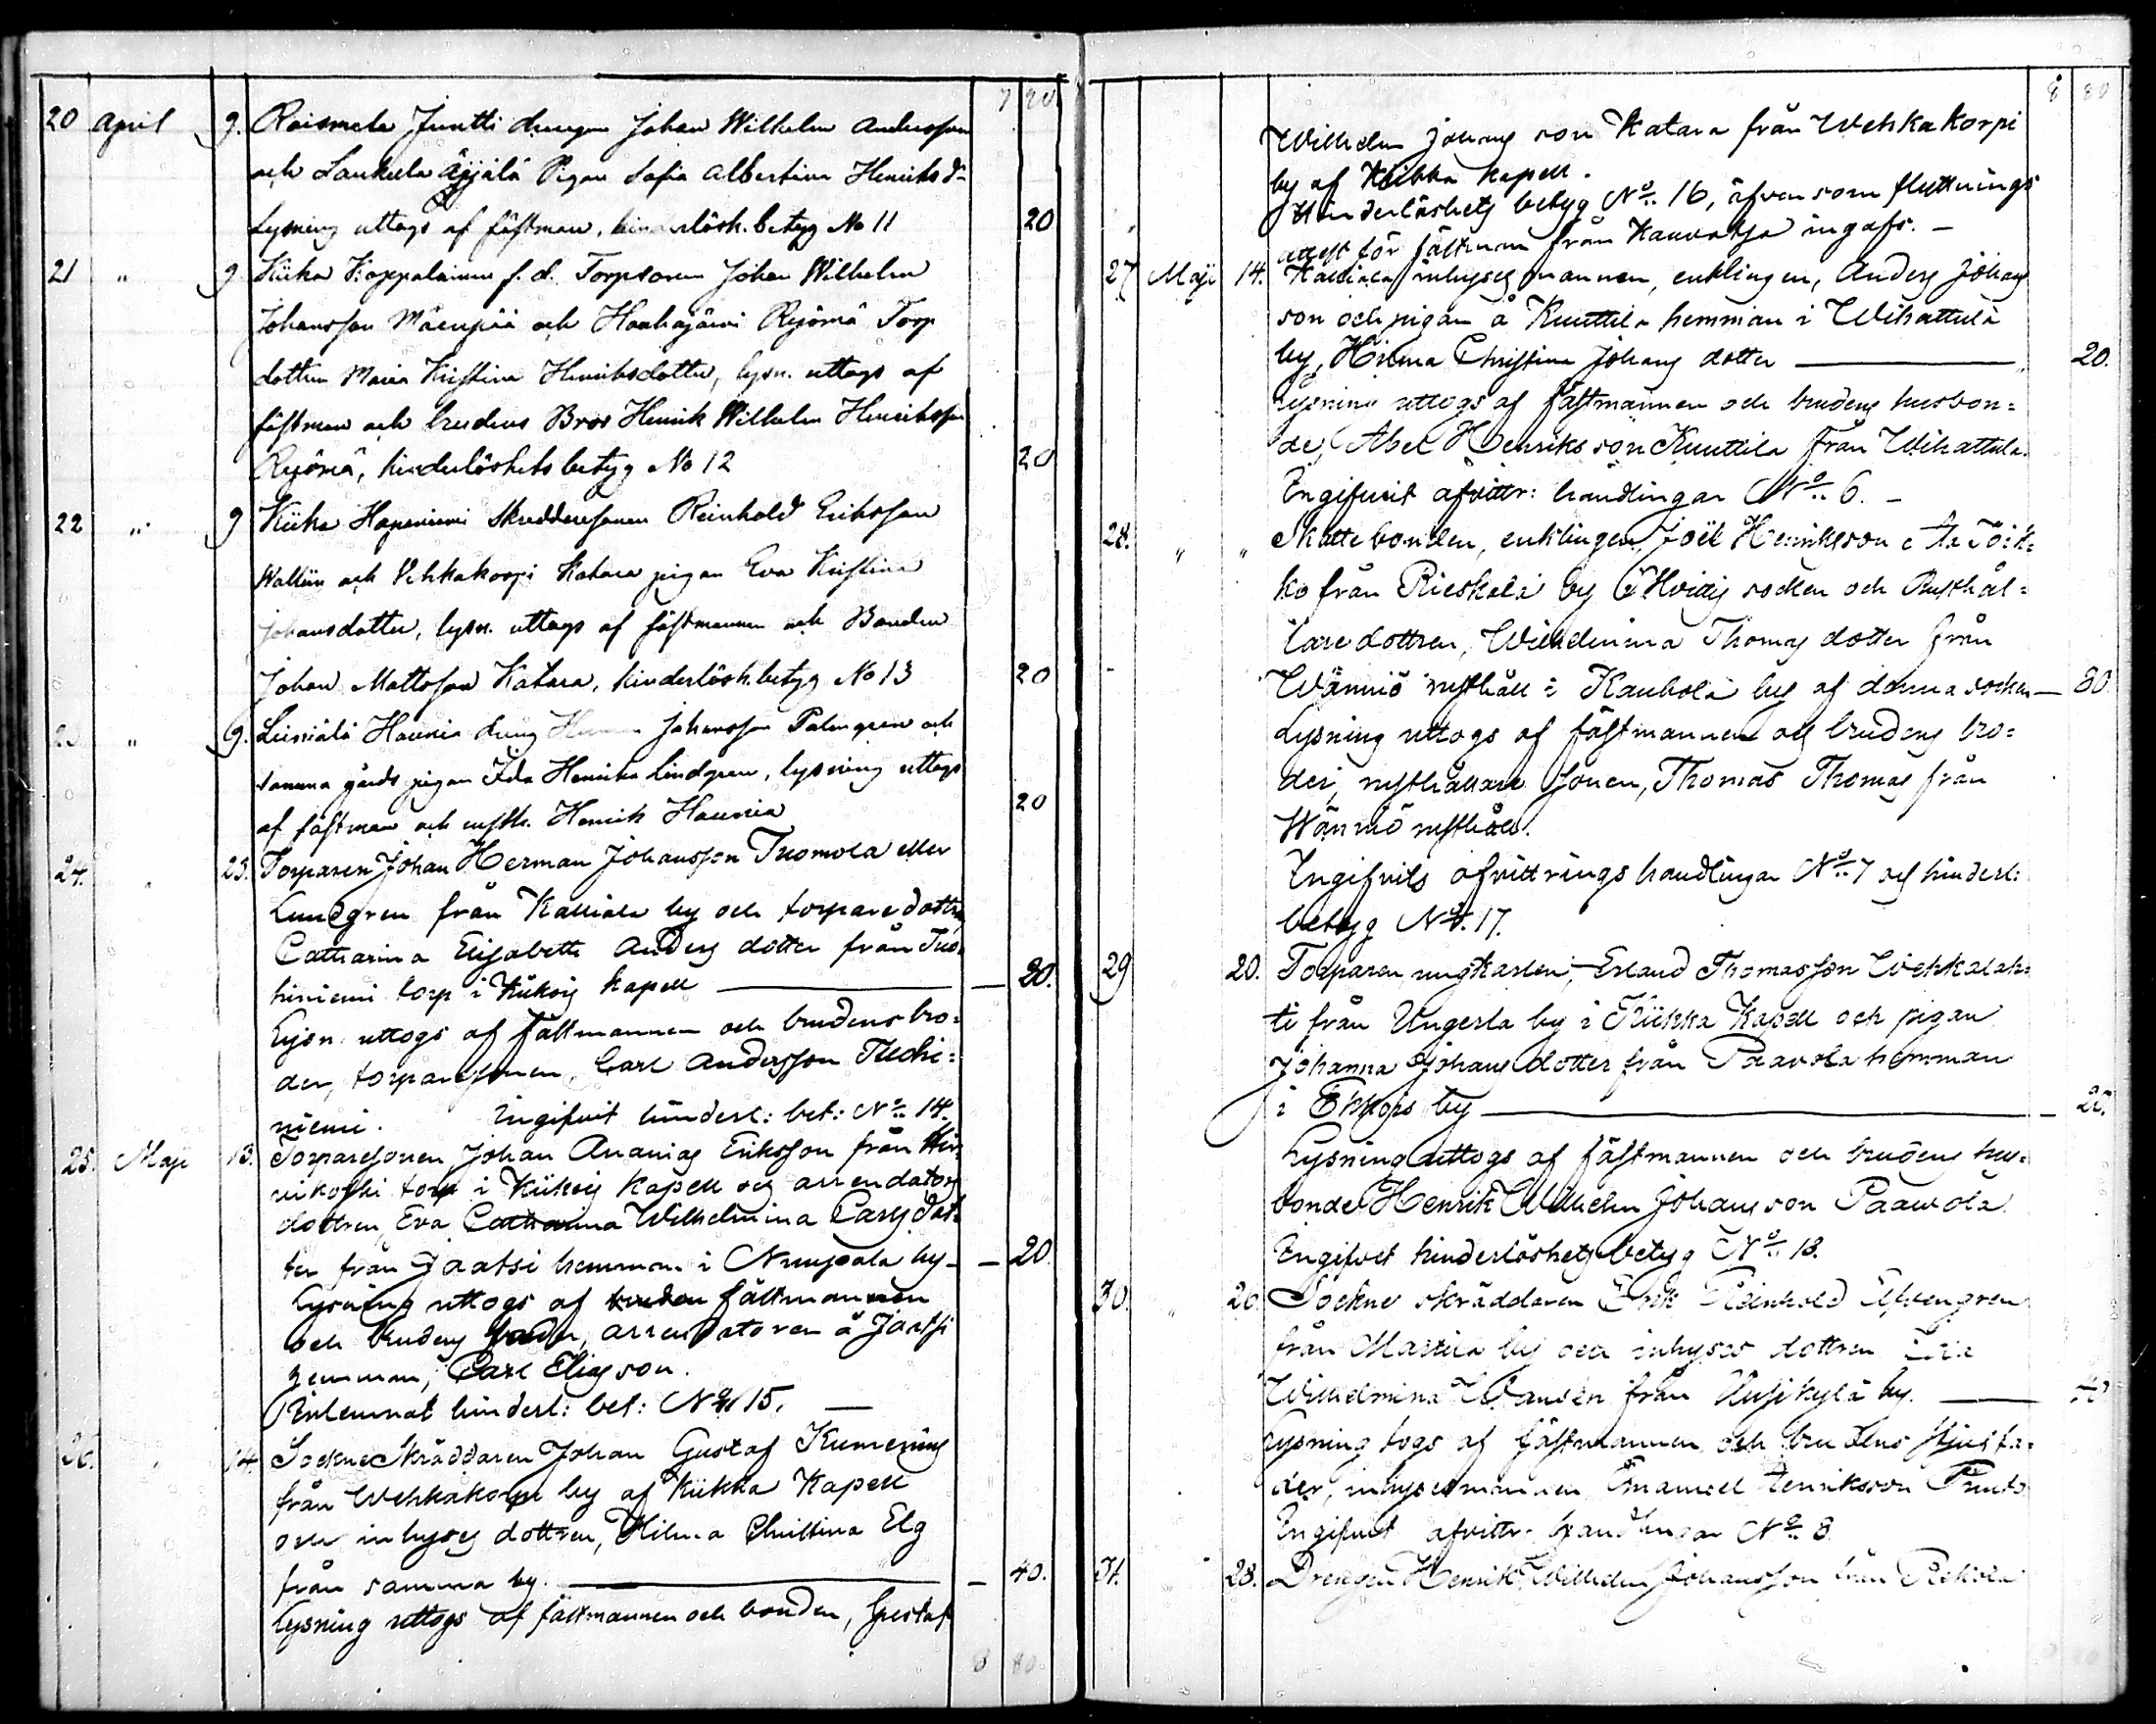 7 20
20 april 9. Raismela Juntti drengen Johan Wilhelm Andersson
och Laukula Äijälä Pigan Sofia Albertina Henriksdr
Lysning uttogs af fästman, hinderlösh. betyg No 11 20
21 " 9 Kiika Koppalainen f. d. Torpsonen Johan Wilhelm
Johansson Mäenpää och Haukajärvi Rejömä Torp
dottern Maria Kristina Henriksdotter, lysn. uttogs af
fästman och brudens Bror Henrik Wilhelm Henriksson
Rejömä, hinderlöshets betyg No 12 20
22 " 9 Kiika Haponiemi Skreddaresonen Reinhold Eriksson
Wallin och Vehkakorpi Katara pigan Eva Kristina
Johansdotter, lysn. uttogs af fästmannen och Bonden
Johan Mattsson Katara, hinderlösh. betyg No 13 20
23 " 9. Leiniälä Haunia dreng Johansson Palmgren och
samma gårds pigan Ida Henrika Lindgren, lysning uttogs
af fästman och rusth. Henrik Haunia 20
24. " 23. Torparen Johan Herman Johansson Tuomola eller
Lundgren från Kalliala by och torparedottren
Catharina Elisabeth Anders dotter från Tuo-
hiniemi torp i Kiikois kapell — 20.
Lysn. uttogs af fästmannen och brudens bro=
der, torparesonen, Carl Andersson Tuohi=
niemi. Ingifvit hinderl: bet: No 14.
25. Maji 13. Torparesonen Johan Ananias Eriksson från
torp i Kiikois kapell och arrendators
dottren, Eva Catharina Wilhelmina Carls dot=
ter från Jaatsi hemman i Nuupala by — 20.
Lysning uttogs af bruden fästmannen
och brudens fader, arrendatoren å Jaatsi
hemman, Carl Eliasson.
Inlemnat hinderl: bet: No 15. —
26. " 14. Sockne Skräddaren Johan Gustaf Kumenius
från Wehkakorpi by af Kiikka Kapell
och inhyses dottren, Hilma Christina Elg
från samma by. — 40.
Lysning uttogs af fästmannen och bonden, Gustaf
8 80
8 80
Wilhelm Johans son Katara från Wehkakorpi
by af Kiikka kapell.
Hinderlöshets betyg No 16, äfvensom flyttnings
attest för fästman från Kauvatsa ingafs. —
27 Maji 14. Kalliala inhyses mannen, enklingen, Anders Johans
son och pigan å Kuuttila hemman i Wihattula
by, Hilma Christina Johans dotter — 20.
Lysning uttogs af fästmannen och brudens husbon=
de, Abel Henriksson Kuuttila från Wihattula.
Ingifvit afvittr: handlingar No 6. —
28. " " Skattebonden, enklingen, Joël Henriksson
ko från Rieskala by i Hvittis socken och Rusthål=
lare dottren, Wilhelmina Thomas dotter från
Wänniö rusthåll i Kaukola by af denna socken — 80
Lysning uttogs af fästmannen och brudens bro=
der, rusthållare sonen, Thomas Thomas från
Wänniö rusthåll.
Ingifvits afvittrings handlingar No 7 och hinderl:
betyg No. 17.
29 20. Torparen, ungkarlen, Erland Thomasson Wehkalah=
ti från Ungerla by i Kiikka Kapell och pigan
Johanna Johans dotter från Paavola hemman
i Ekkojs by — 20.
Lysning uttogs af fästmannen och brudens hus=
bonde Henrik Wilhelm Johansson Paavola.
Ingifvit hinderlöshets betyg No 18.
30. " 26. Sockne skräddaren Erik Reinhold Elfvengren
från Martila by och inhyses dottren
Wilhelmina Wandén från Uusikylä by. — 40
Lysning togs af fästmannen och brudens stjuffa=
der, inhysesmannen Emanuel Henriksson
Ingifvit afvittr. handlingar No 8.
31. " 28. Drengen Henrik Wilhelm Johansson från